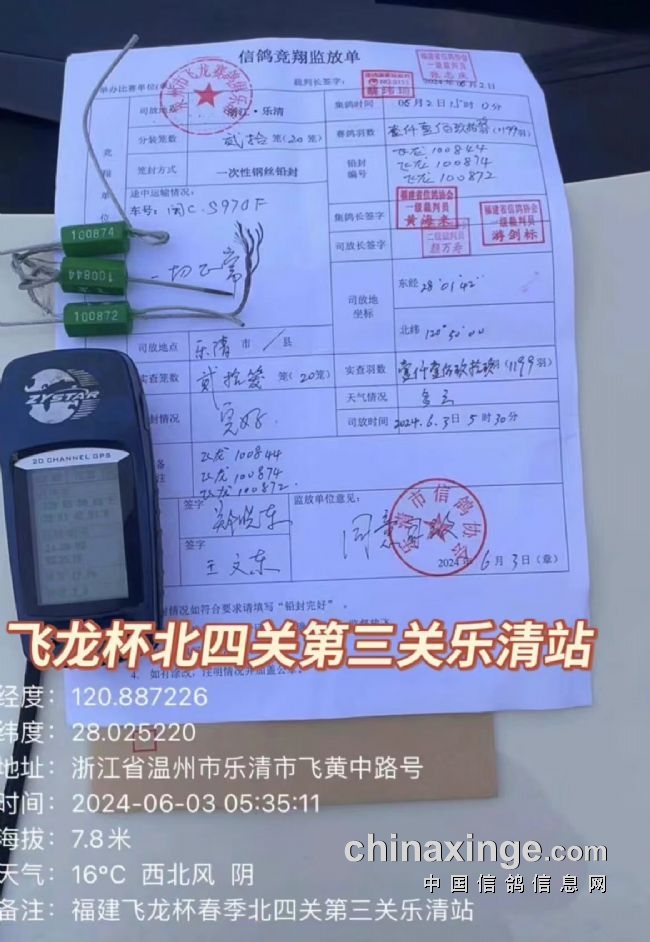 信鸽竞翔监放单
举办比赛单位(
裁判长签字:
福建省信鸽协会
一级裁判员
张志庆
2024年06月2日
司放地点
浙江·乐清
集鸽时间
06月2日15时0分
分装笼数
贰拾(20笼)
赛鸽羽数
(1199羽)
笼封方式
一次性钢丝铅封
铅封
编号
飞龙100844
飞龙100874
飞龙100872
途中运输情况:
车号:闽C·S970F
一切正常
集鸽长签字
福建省信鸽协会
一级裁判员
黄海来
福建省信鸽协会
一级裁判员
游剑标
司放长签字
二级裁判员
100874
100844
100872
司放地
坐标
东经 28°01′42″
北纬 120°50′00
司放地点
乐清 市 / 县
实查笼数
笼(20笼)
实查羽数
(1199羽)
封情况
完好
天气情况
多云
司放时间
2024.6.3日5时30分
备
注
飞龙100844
飞龙100874
飞龙100872
签字
签字
王文东
监放单位意见:
同意司放
2024年6月3日(章)
封情况如符合要求请填写“铅封完好”。
4、如有涂改,注明情况并加盖公章
ZYSTAR
20 CHANNEL GPS
飞龙杯北四关第三关乐清站
经度:120.887226
纬度:28.025220
地址:浙江省温州市乐清市飞黄中路号
时间:2024-06-03 05:35:11
海拔:7.8米
天气:16℃ 西北风 阴
备注:福建飞龙杯春季北四关第三关乐清站
chinaxinge.com
中国信鸽信息网